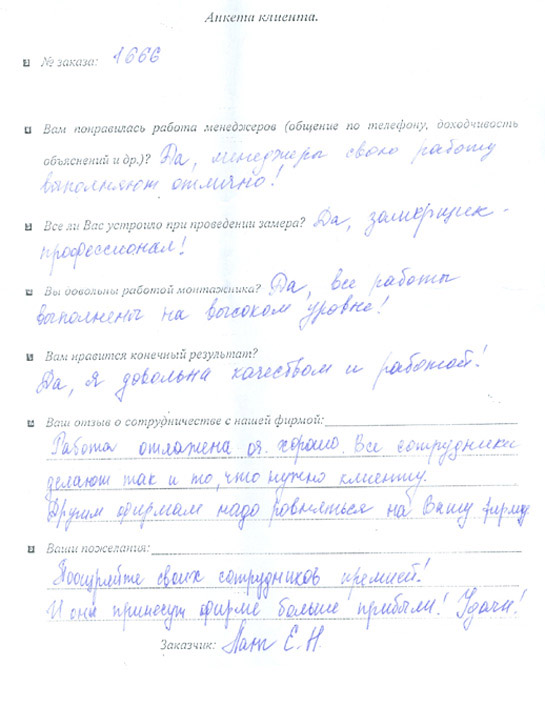 Анкета клиента.
№ заказа: 1666
Вам понравилась работа менеджеров (общение по телефону, доходчивость
объяснений и др.)? Да, менеджеры свою работу
выполняют отлично!
Все ли Вас устроило при проведении замера? Да, замерщик -
профессионал!
Вы довольны работой монтажника? Да, все работы
выполнены на высоком уровне!
Вам нравится конечный результат?
Да, я довольна качеством и работой!
Ваш отзыв о сотрудничестве с нашей фирмой:
Работа отлажена оч. хорошо. Все сотрудники
делают так и то, что нужно клиенту.
Другим фирмам надо ровняться на Вашу фирму
Ваши пожелания:
Поощряйте своих сотрудников премией!
И они принесут фирме больше прибыли! Удачи!
Заказчик: Е.Н.